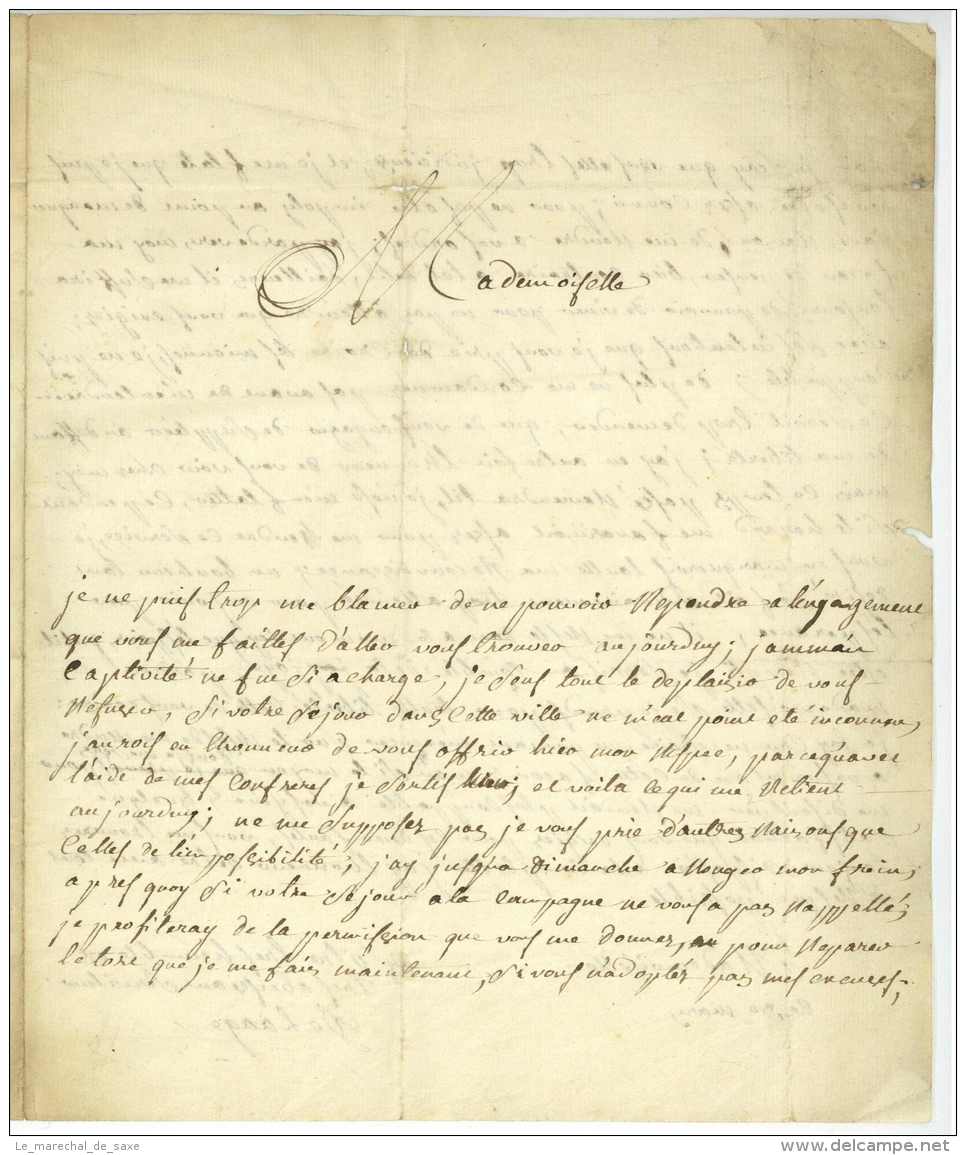 Mademoiselle
je ne puis trop me blamer de ne pouvoir Repondre a l'engagement
que vous me faittes d'aller vous trouver aujourduy; jammais
Captivité ne fut si a charge, je sens tout le deplaisir de vous
Refuser, Si votre Sejour dans Cette ville ne m'eut point eté inconnu,
j'aurois eu l'honneur de vous offrir hier mon Respec, parcequ'avec
l'aide de mes Confreres je Sortis hier; et voila Ce qui me Retient
aujourduy; ne me Supposez pas je vous prie d'autres Raisons que
Celles de l'impossibilité; j'ay jusqu'a Dimanche a Ronger mon frein,
apres quoy Si votre Sejour a la Campagne ne vous a pas Rappellé;
je profiteray de la permission que vous me donnez, pour Reparer
le tort que je me fais maintenant, Si vous n'adoptés pas mes excuses,
Le_marechal_de_saxe
www.delcampe.net